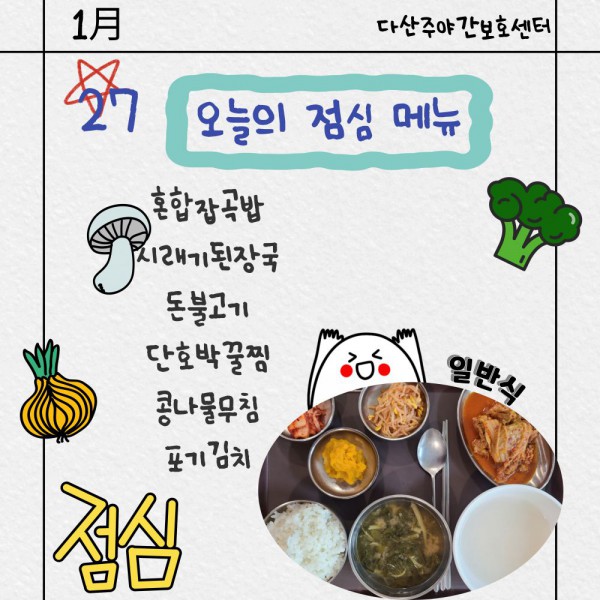 1月
다산주야간보호센터
27
오늘의 점심 메뉴
혼합잡곡밥
시래기된장국
돈불고기
단호박꿀찜
콩나물무침
포기김치
일반식
점심